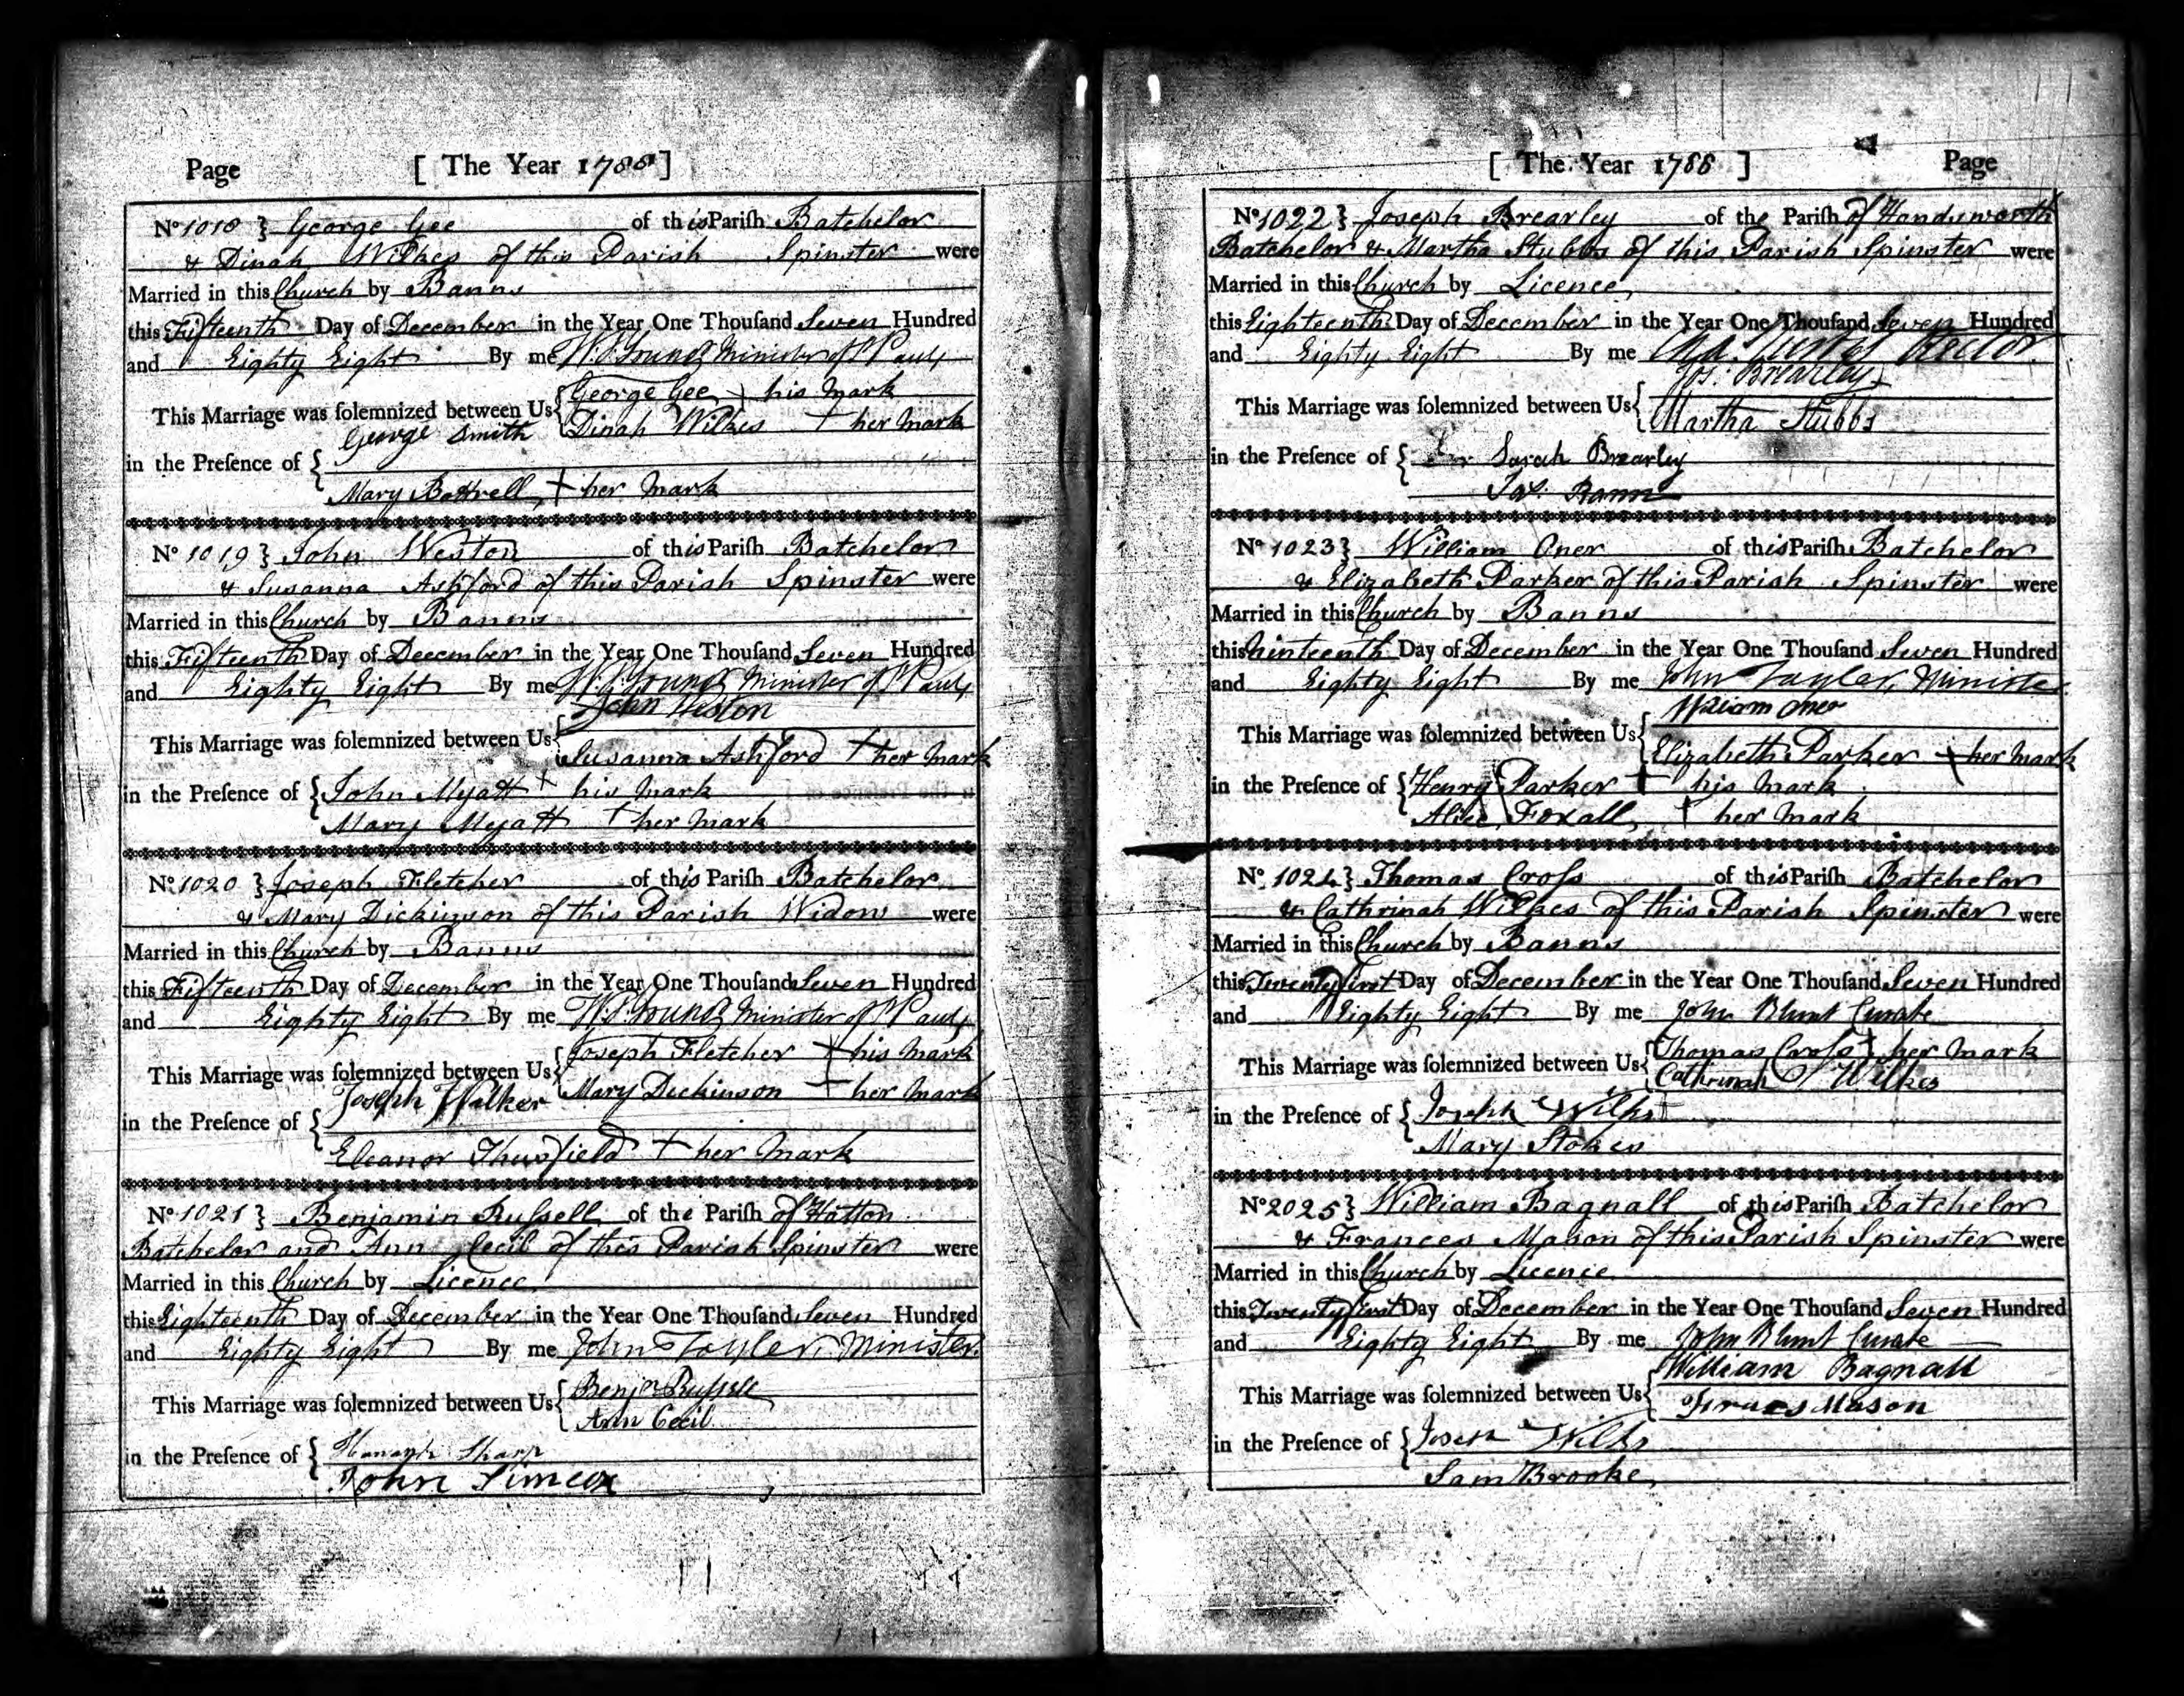 Page [ The Year 1788 ]
No 1018 } George Gee of this Pariſh Batchelor
& Dinah Wilkes of this Parish Spinster were
Married in this Church by Banns
this Fifteenth Day of December in the Year One Thouſand Seven Hundred
and Eighty Eight By me W. Young Minister of St Pauls
This Marriage was ſolemnized between Us { George Gee + his mark
Dinah Wilkes + her mark
George Smith
in the Preſence of {
Mary Bottrell + her mark
No 1019 } John Weston of this Pariſh Batchelor
& Susanna Ashford of this Parish Spinster were
Married in this Church by Banns
this Fifteenth Day of December in the Year One Thouſand Seven Hundred
and Eighty Eight By me W. Young Minister of St Pauls
John Weston
This Marriage was ſolemnized between Us {
Susanna Ashford + her mark
in the Preſence of { John Myatt + his mark
Mary Myatt + her mark
No 1020 } Joseph Fletcher of this Pariſh Batchelor
& Mary Dickinson of this Parish Widow were
Married in this Church by Banns
this Fifteenth Day of December in the Year One Thouſand Seven Hundred
and Eighty Eight By me W. Young Minister of St Pauls
This Marriage was ſolemnized between Us { Joseph Fletcher + his mark
Mary Dickinson + her mark
Joseph Walker
in the Preſence of {
Eleanor Thursfield + her mark
No 1021 } Benjamin Ruſsell of the Pariſh of Hatton
Batchelor and Ann Cecil of this Parish Spinster were
Married in this Church by Licence
this Eighteenth Day of December in the Year One Thouſand Seven Hundred
and Eighty Eight By me John Toyler, Minister.
This Marriage was ſolemnized between Us { Benjn Ruſsell
Ann Cecil
in the Preſence of { Hanagh Sharp
John Simcox
[ The Year 1788 ] Page
No 1022 } Joseph Brearley of the Pariſh of Handsworth
Batchelor & Martha Stubbs of this Parish Spinster were
Married in this Church by Licence
this Eighteenth Day of December in the Year One Thouſand Seven Hundred
and Eighty Eight By me Chas. Curtis Rector
Jos: Brearley
This Marriage was ſolemnized between Us {
Martha Stubbs
in the Preſence of { Sarah Brearley
Jas. Rann
No 1023 } William Oner of this Pariſh Batchelor
& Elizabeth Parker of this Parish Spinster were
Married in this Church by Banns
this Ninteenth Day of December in the Year One Thouſand Seven Hundred
and Eighty Eight By me John Tayler, Minister
William Oner
This Marriage was ſolemnized between Us {
Elizabeth Parker + her mark
in the Preſence of { Henry Parker + his mark
Alice Foxall + her mark
No 1024 } Thomas Croſs of this Pariſh Batchelor
& Cathrinah Wilkes of this Parish Spinster were
Married in this Church by Banns
this Twenty first Day of December in the Year One Thouſand Seven Hundred
and Eighty Eight By me John Blunt Curate
This Marriage was ſolemnized between Us { Thomas Croſs + her mark
Cathrinah Wilkes
in the Preſence of { Joseph Wilks
Mary Stokes
No 2025 } William Bagnall of this Pariſh Batchelor
& Frances Mason of this Parish Spinster were
Married in this Church by Licence
this Twenty first Day of December in the Year One Thouſand Seven Hundred
and Eighty Eight By me John Blunt Curate
William Bagnall
This Marriage was ſolemnized between Us {
Frances Mason
in the Preſence of { Joseph Wilks
Sam Brooke